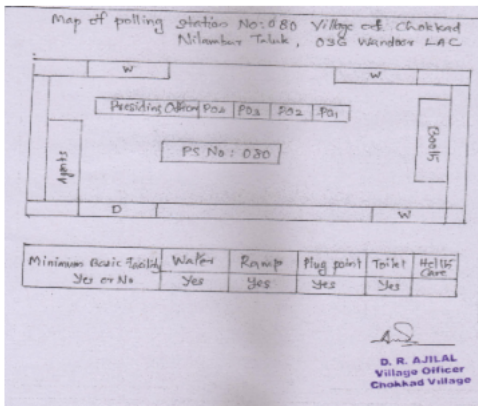 Map of polling station No: 080 Village of Chokkad
Nilambur Taluk, 036 Wandoor LAC
W
W
Presiding Officer PO2 PO3 PO2 PO1
Booth
PS No: 080
D
W
Minimum Basic Facility Water Ramp Plug point Toilet Helth Care
Yes or No Yes Yes Yes Yes
D. R. AJILAL
Village Officer
Chokkad Village